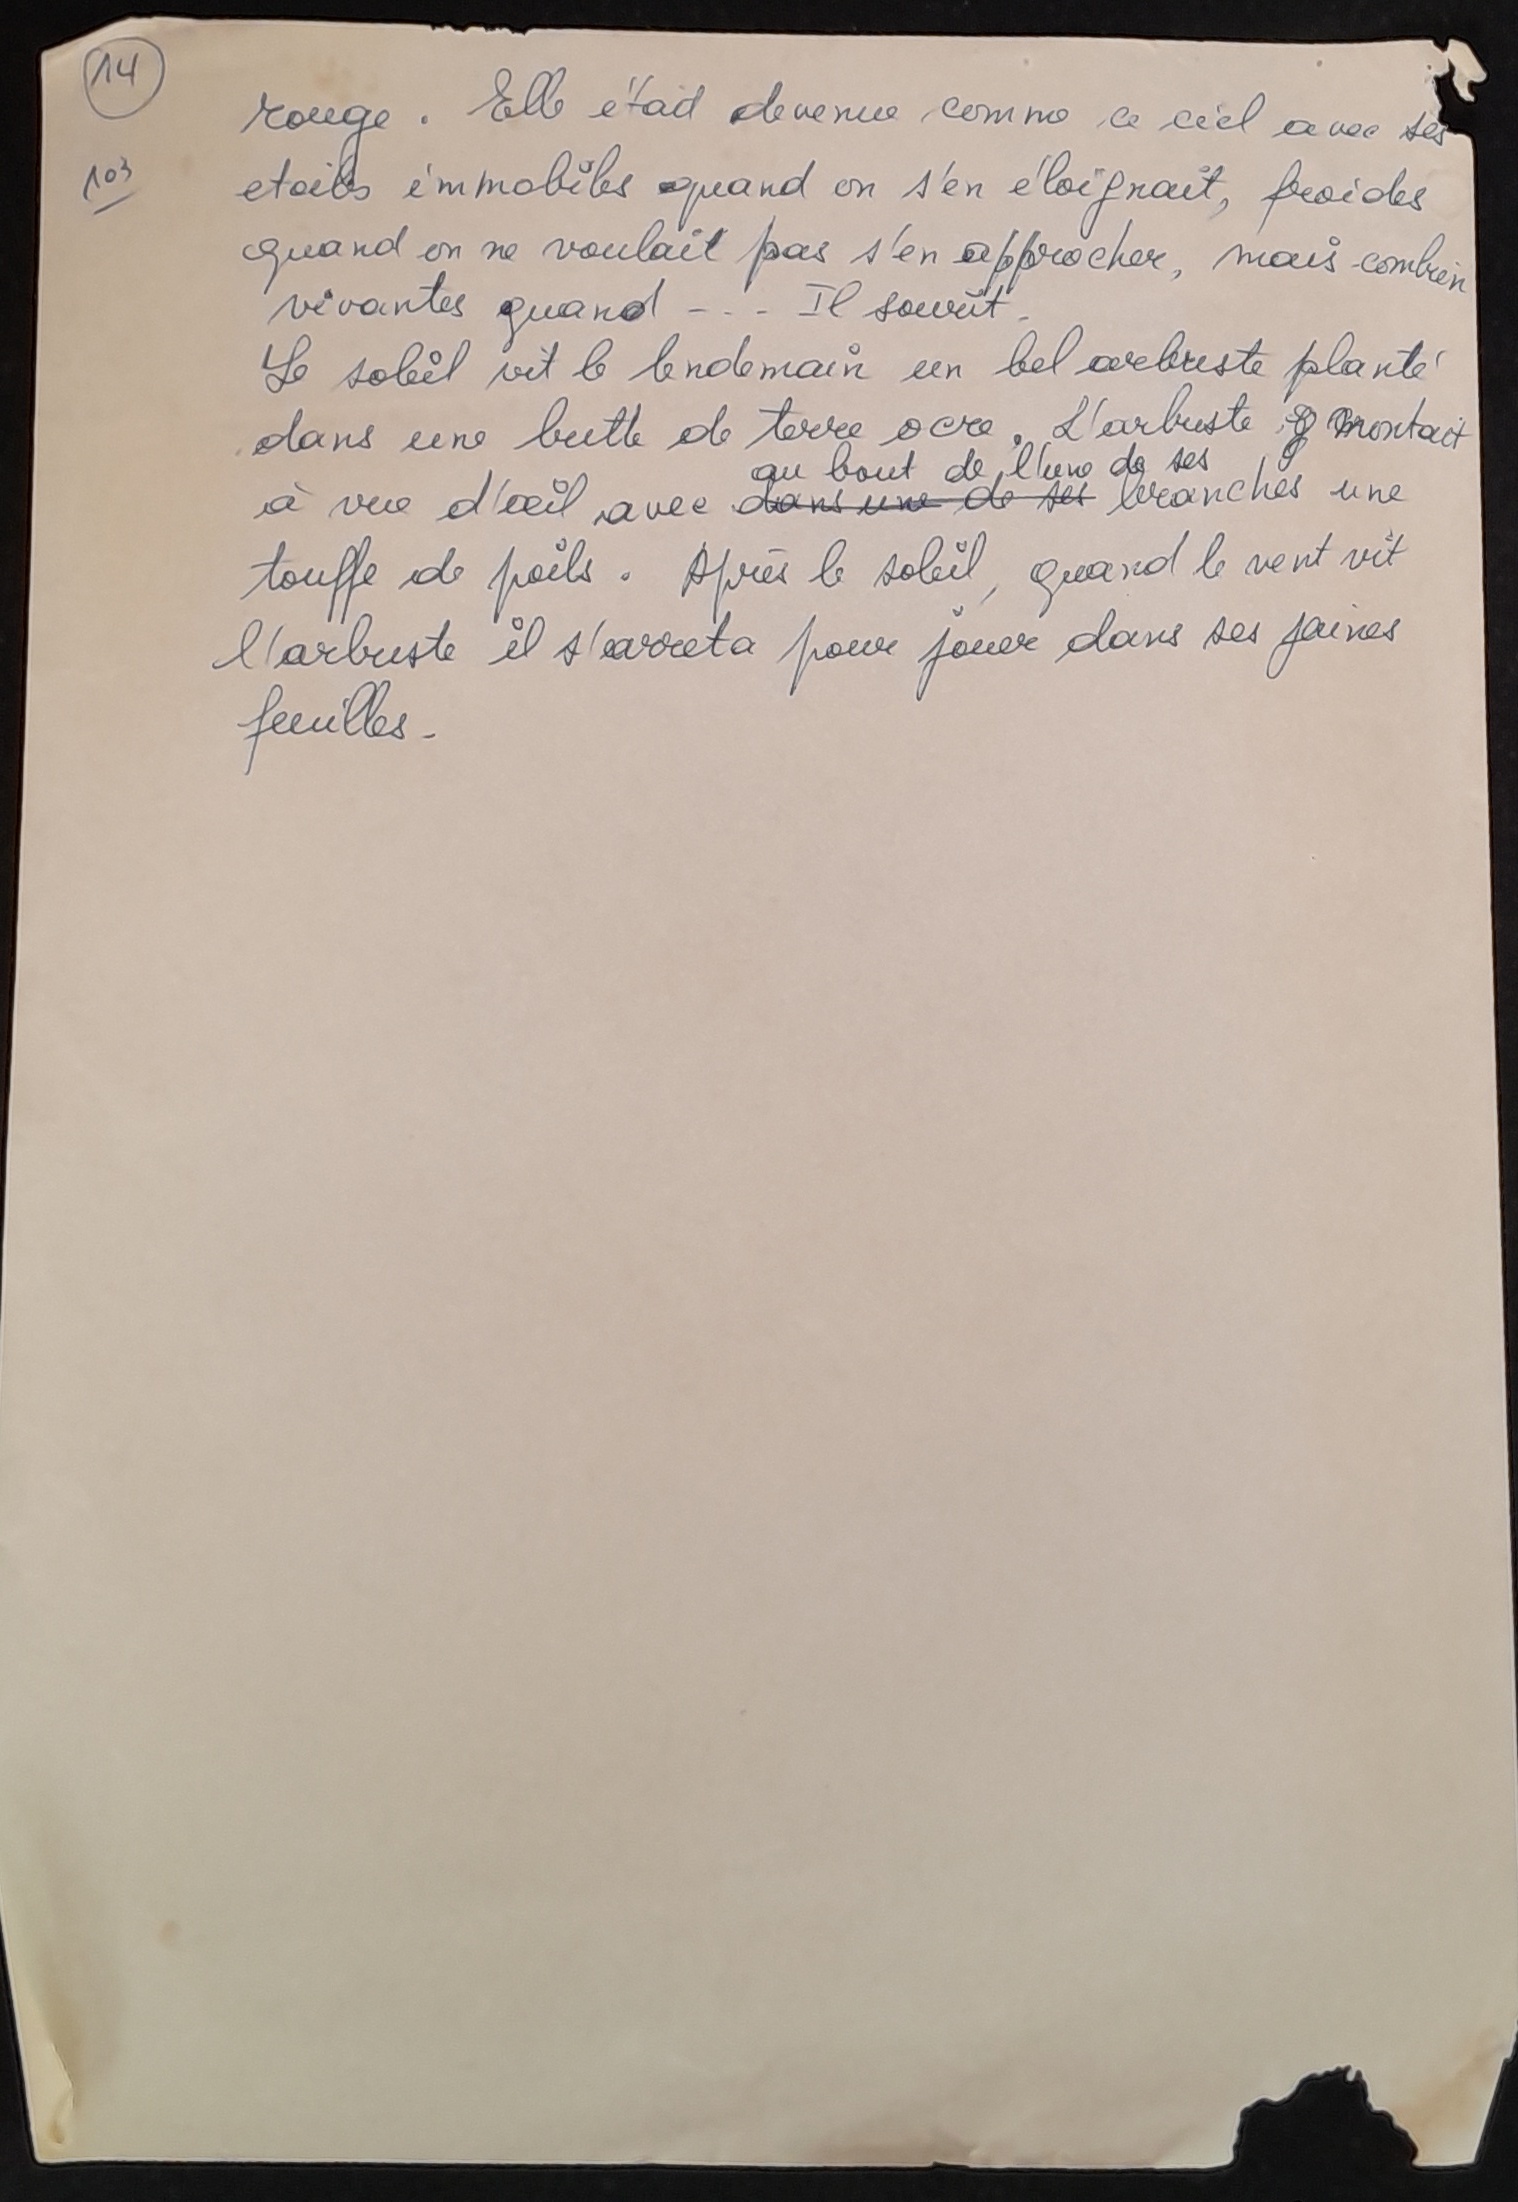 14
103
rouge. Elle était devenue comme ce ciel avec ses
etoiles immobiles quand on s'en éloignait, froides
quand on ne voulait pas s'en approcher, mais combien
vivantes quand --- Il sourit.
Le soleil vit le lendemain un bel arbuste planté
dans une butte de terre ocre. L'arbuste montait
au bout de l'une de ses
à vue d'œil avec dans une de ses branches une
touffe de poils. Après le soleil, quand le vent vit
l'arbuste il s'arreta pour jouer dans ses jaines
feuilles.